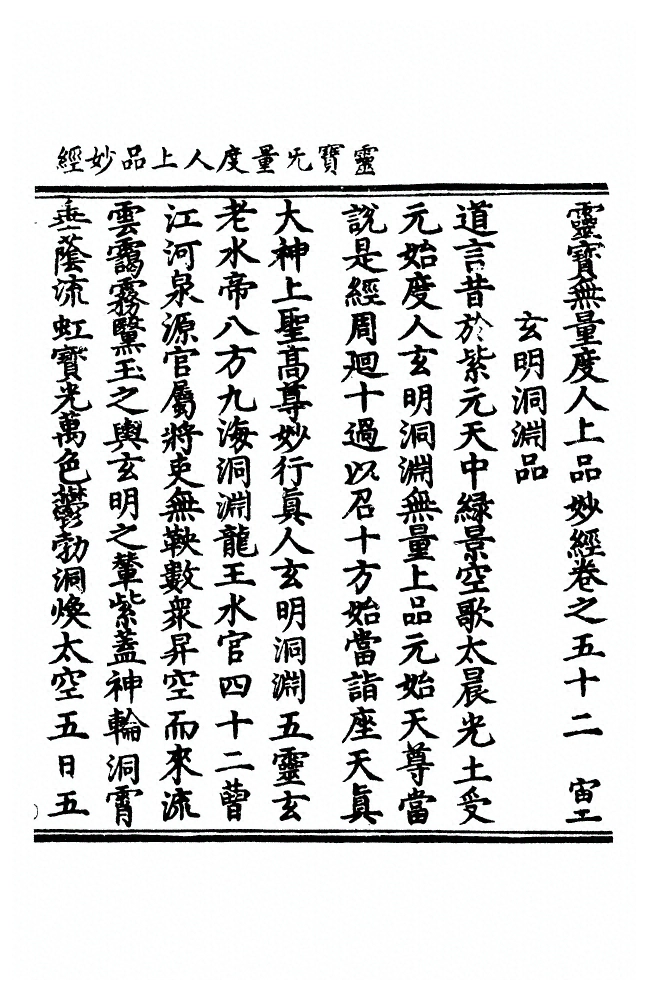 靈寶无量度人上品妙經
靈寶無量度人上品妙經卷之五十二　宙工
玄明洞淵品
道言昔於紫元天中緑景空歌太晨光土受
元始度人玄明洞淵無量上品元始天尊當
說是經周廻十過以召十方始當詣座天真
大神上聖高尊妙行真人玄明洞淵五靈玄
老水帝八方九海洞淵龍王水官四十二曹
江河泉源官屬將吏無鞅數衆昇空而來流
雲靄霧翳玉之輿玄明之輦紫蓋神輪洞霄
垂蔭流虹寶光萬色鬱勃洞煥太空五日五